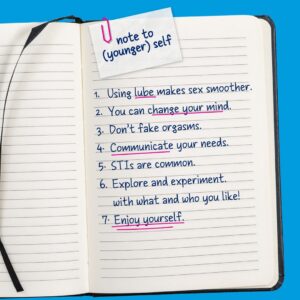 note to
(younger) self
1. Using lube makes sex smoother.
2. You can change your mind.
3. Don't fake orgasms.
4. Communicate your needs.
5. STIs are common.
6. Explore and experiment.
with what and who you like!
7. Enjoy yourself.